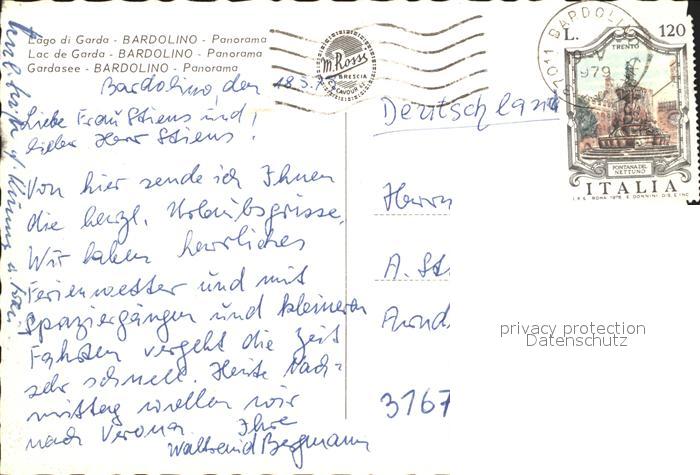 Lago di Garda - BARDOLINO - Panorama
Lac de Garda - BARDOLINO - Panorama
Gardasee - BARDOLINO - Panorama
M. Rossi
BRESCIA
L. 120
TRENTO
FONTANA DEL
NETTUNO
ITALIA
BARDOLINO
1979
Bardolino, den 18.5.7
Liebe Frau Stiens und
lieber Herr Stiens!
Von hier sende ich Ihnen
die herzl. Urlaubsgrüsse.
Wir haben herrliches
Ferienwetter und mit
Spaziergängen und kleineren
Fahrten vergeht die Zeit
sehr schnell. Heute Nach-
mittag wollen wir
nach Verona. Ihre
Waltraud Bergmann
Deutschland
Herrn
A. St
Arnd
3167
privacy protection
Datenschutz